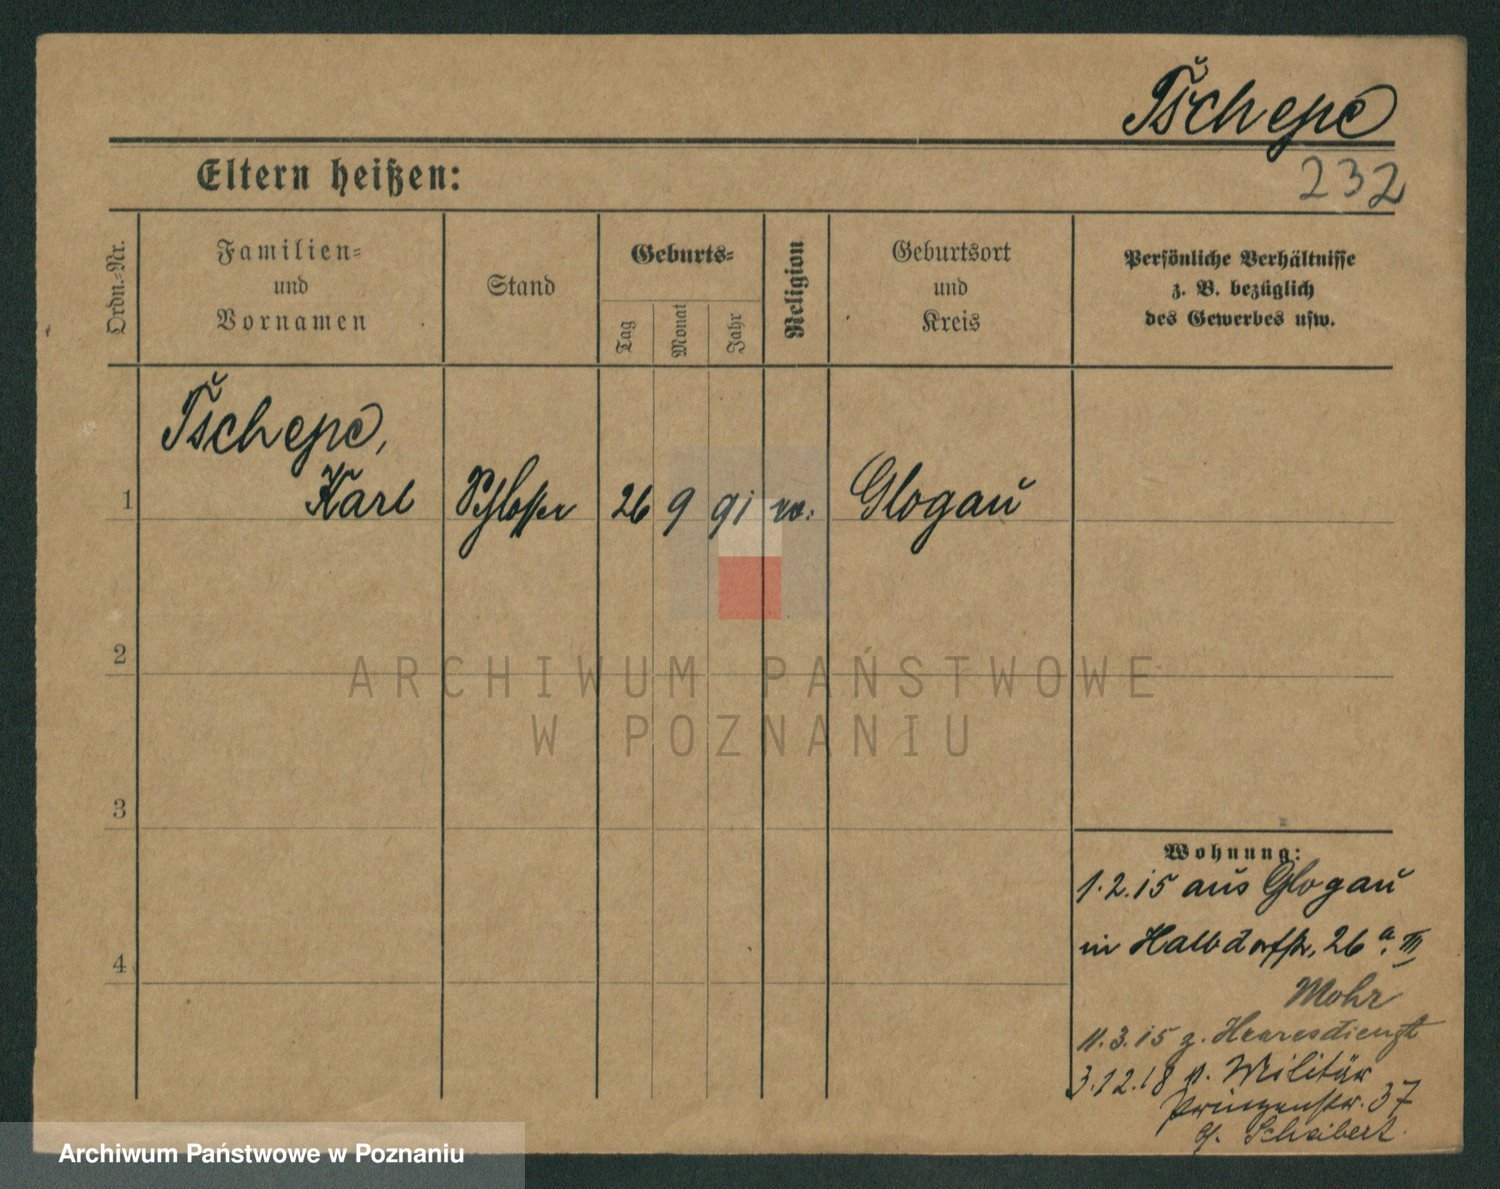 Tschepe
232
Eltern heißen:
Ordn.-Nr.
Familien-
und
Vornamen
Stand
Geburts-
Tag
Monat
Jahr
Religion
Geburtsort
und
Kreis
Persönliche Verhältnisse
z. B. bezüglich
des Gewerbes usw.
Tschepe,
1 Karl Schlosser 26 9 91 Glogau
2
3
4
Wohnung:
1.2.15 aus Glogau
in Halbdorfstr. 26a. III
Mohr
11.3.15 z. Heeresdienst
3.12.18 v. Militär
Prinzenstr. 37
Scheibert
ARCHIWUM PAŃSTWOWE
W POZNANIU
Archiwum Państwowe w Poznaniu